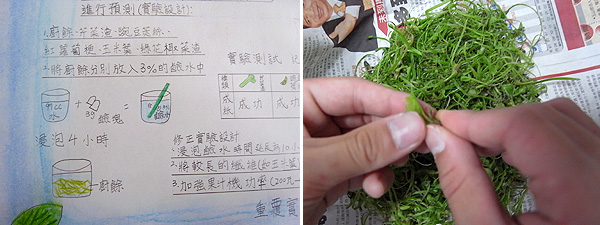 進行預測(實驗設計):
1.廚餘:芥菜渣、豌豆莢絲、
紅蘿蔔梗、玉米葉、綠花椰菜渣
2.將廚餘分別放入3%的鹼水中
97cc
水
+
3g
鹼塊
=
浸泡4小時
廚餘
實驗測試
種類
成紙
成功
成功
修正實驗設計
1.浸泡鹼水時間延長為10小
2.將較長的纖維(如玉米葉
3.加強果汁機功率(200九
重覆實